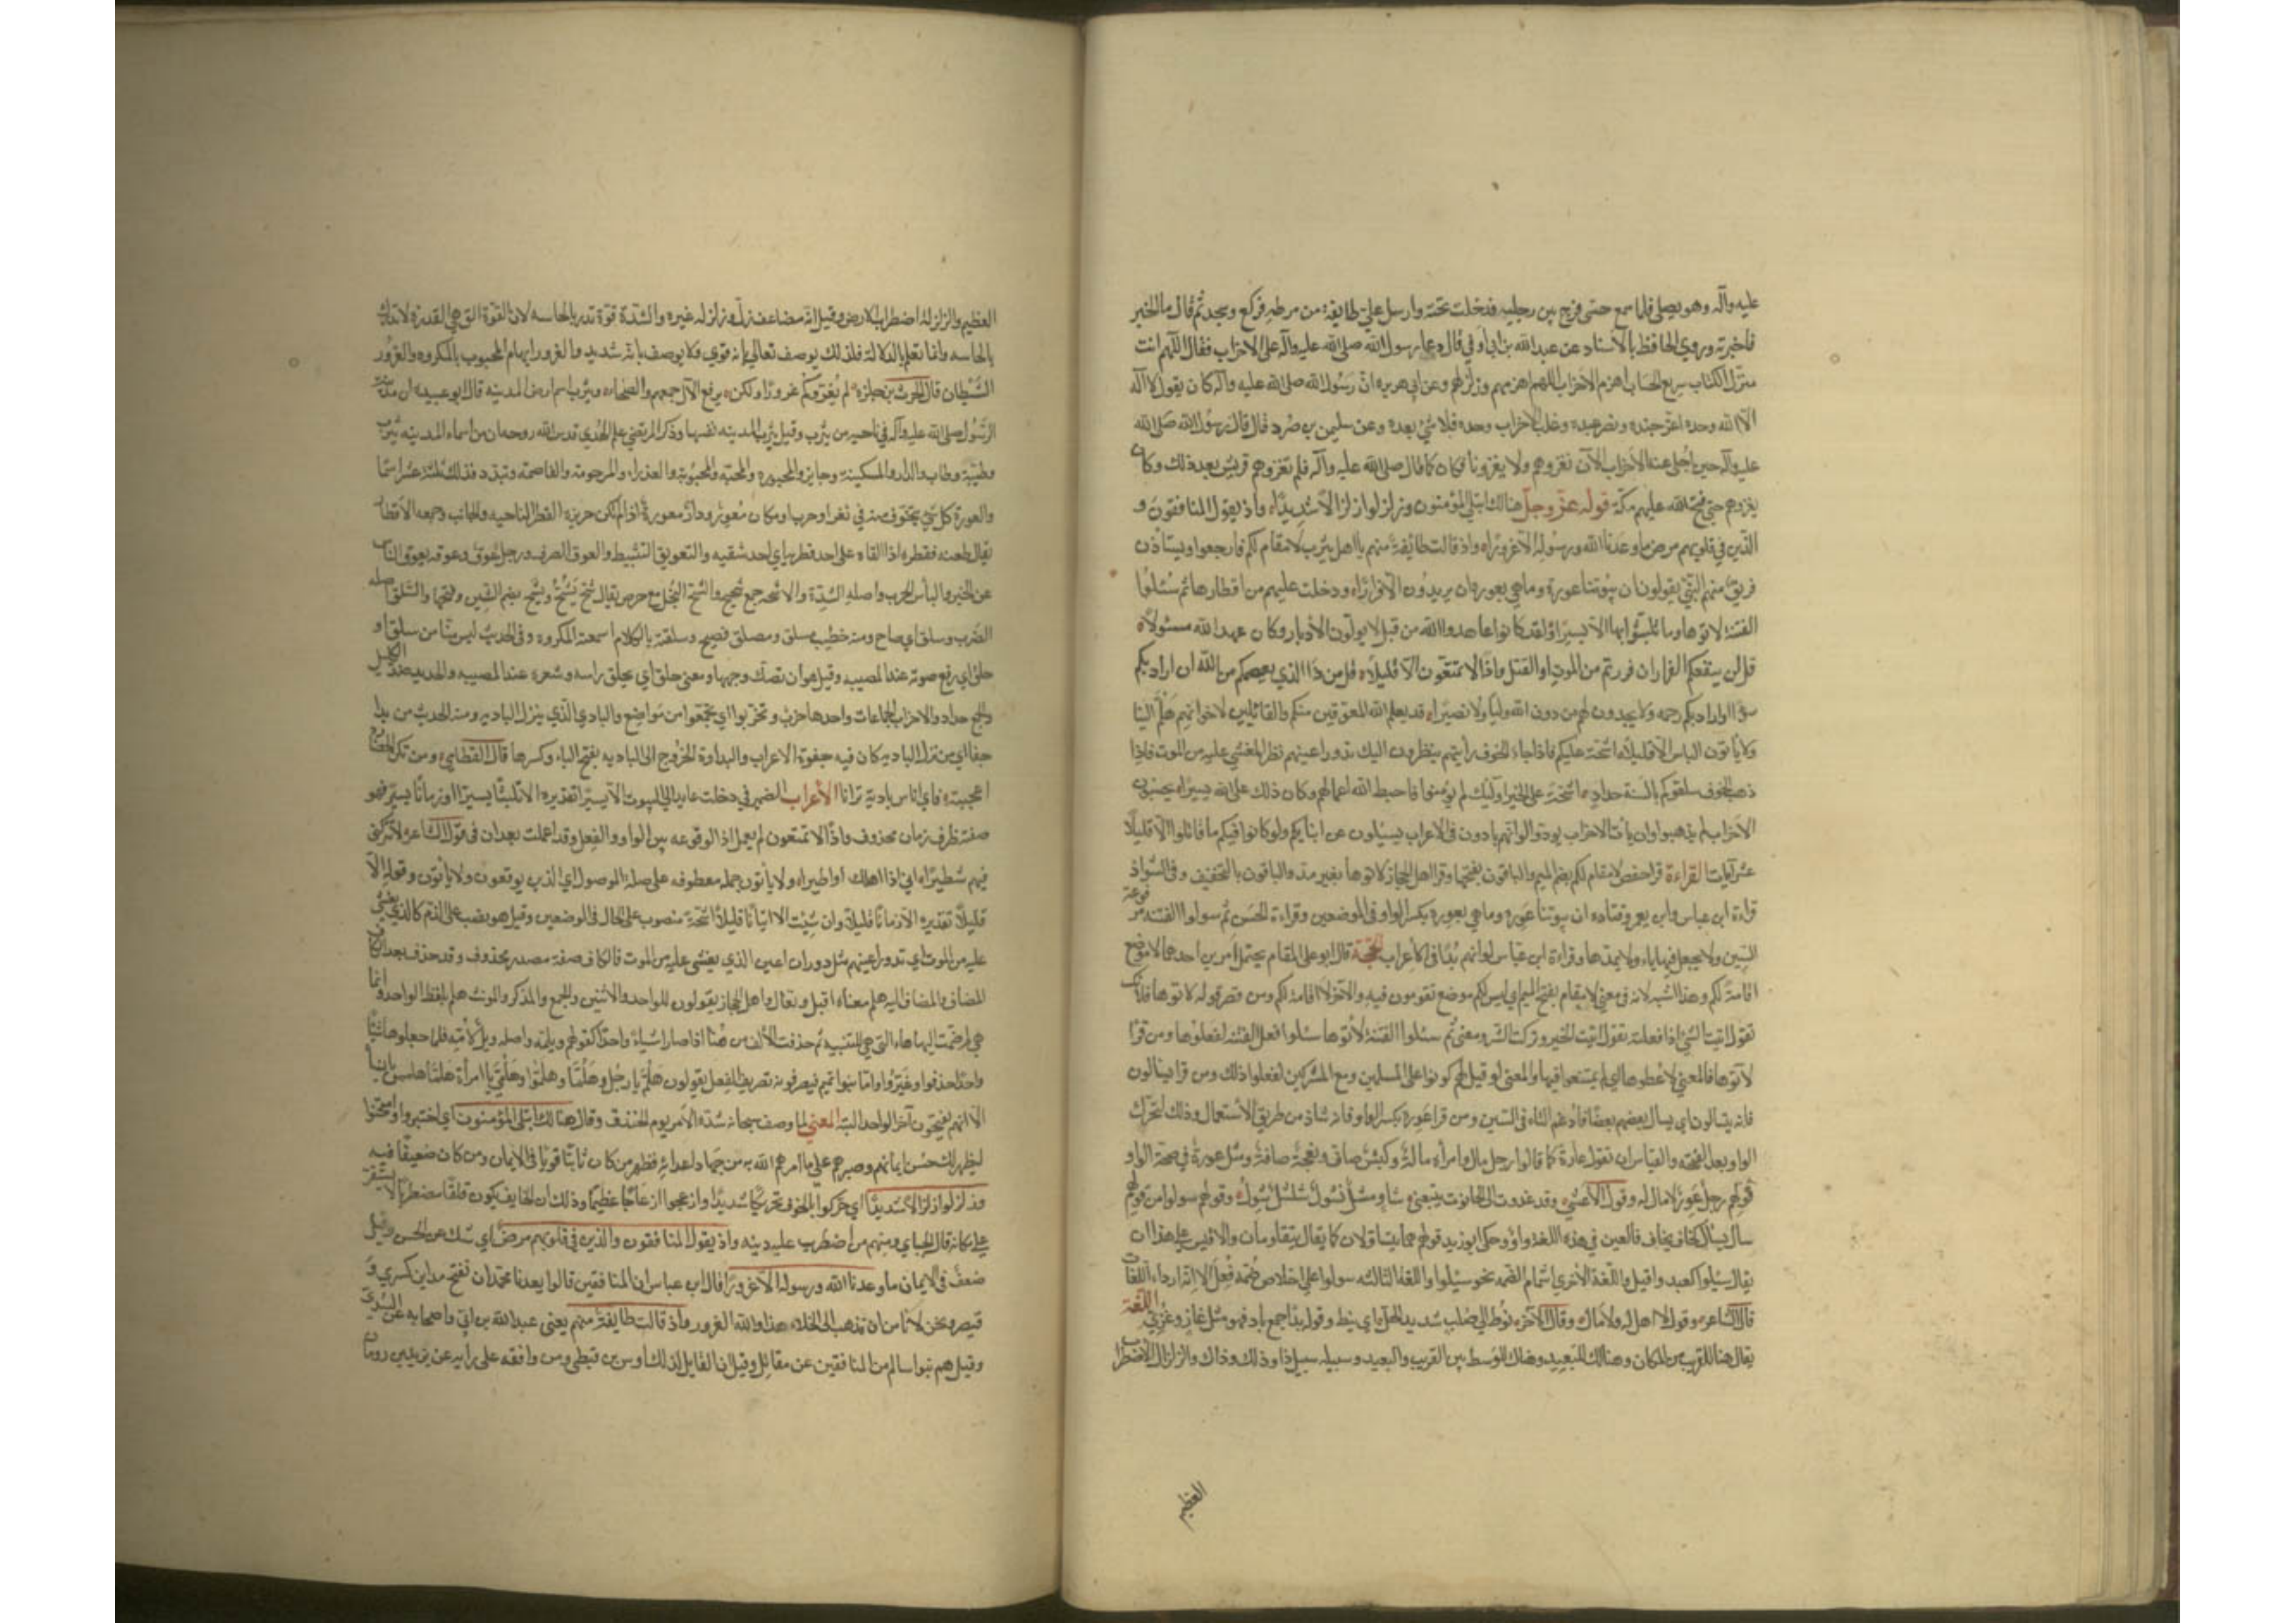 عليه وآله وهو يصلي فلما سمع حسي فرج بين رجليه فدخلت تحته وارسل علي طايفة من مرطه فركع وسجد ثم قال ما الخبر
فاخبرته وروي الحافظ بالاسناد عن عبدالله بن ابي اوفي قال دعا رسول الله صلي الله عليه وآله علي الاحزاب فقال اللهم انت
منزل الكتاب سريع الحساب اهزم الاحزاب اللهم اهزمهم وزلزلهم وعن ابي هريره ان رسول الله صلي الله عليه وآله كان يقول لا اله
الا الله وحده اعز جنده ونصر عبده وغلب الاحزاب وحده فلا شئ بعده وعن سليمن بن صرد قال قال رسول الله صلي الله
عليه وآله حين اجلي عنه الاحزاب الآن نغزوهم ولا يغزونا فكان كما قال صلي الله عليه وآله فلم تغزوهم قريش بعد ذلك وكان
يغزوهم حتي فتح الله عليهم مكة قوله عز وجل هنالك ابتلي المؤمنون وزلزلوا زلزالا شديدا واذ يقول المنافقون و
الذين في قلوبهم مرض ما وعدنا الله ورسوله الا غرورا واذ قالت طائفة منهم يا اهل يثرب لا مقام لكم فارجعوا ويستاذن
فريق منهم النبي يقولون ان بيوتنا عورة وما هي بعورة ان يريدون الا فرارا ودخلت عليهم من اقطارها ثم سئلوا
الفتنة لاتوها وما تلبثوا بها الا يسيرا ولقد كانوا عاهدوا الله من قبل لا يولون الادبار وكان عهد الله مسئولا
قل لن ينفعكم الفرار ان فررتم من الموت او القتل واذا لا تمتعون الا قليلا قل من ذا الذي يعصمكم من الله ان اراد بكم
سوءا او اراد بكم رحمه ولا يجدون لهم من دون الله وليا ولا نصيرا قد يعلم الله المعوقين منكم والقائلين لاخوانهم هلم الينا
ولا ياتون الباس الا قليلا اشحة عليكم فاذا جاء الخوف رأيتهم ينظرون اليك تدور اعينهم نظر المغشي عليه من الموت فاذا
ذهب الخوف سلقوكم بالسنة حداد اشحة علي الخير اوليك لم يؤمنوا فاحبط الله اعمالهم وكان ذلك علي الله يسيرا يحسبون
الاحزاب لم يذهبوا وان يأت الاحزاب يودوا لو انهم بادون في الاعراب يسئلون عن انبايكم ولو كانوا فيكم ما قاتلوا الا قليلا
عشر آيات القراءة قرا حفص لا مقام لكم بضم الميم والباقون بفتحها وقرا اهل الحجاز لاتوها بغير مد والباقون بالتخفيف وفي الشواذ
قراءة ابن عباس وابن يعمر وقتاده ان بيوتنا عورة وما هي بعورة بكسر الواو في الموضعين وقراءة الحسن ثم سولوا الفتنة مرفوعة
السين ولا يجعل فيها ياء ولا يمدها وقراءة ابن عباس لو انهم بدا في الاعراب الحجة قال ابو علي المقام يحتمل امرين احدهما لا موضع
اقامة لكم وهذا اشبه لانه في معني لا مقام بفتح الميم اي ليس لكم موضع تقومون فيه والآخر لا اقامة لكم ومن قصر قوله لاتوها فلانك
تقول اتيت الشئ اذا فعلته تقول اتيت الخير وتركت الشر ومعني ثم سئلوا الفتنة لاتوها سئلوا فعل الفتنة لفعلوها ومن قرا
لآتوها فالمعني لاعطوها اي لم يمتنعوا فيها والمعني لو قيل لهم كونوا علي المسلمين ومع المشركين لفعلوا ذلك ومن قرا يسالون
فانه يتسالون اي يسال بعضهم بعضا فادغم التاء في السين ومن قرا عورة بكسر الواو فانه شاذ من طريق الاستعمال وذلك لتحرك
الواو بعد الفتحه والقياس ان تقول عارة كما قالوا رجل مال وامرأه مالة وكبش صاف ونعجة صافة ومثل عورة في صحة الواو
قولهم رجل عوز لا مال له وقول الاعشي وقد غدوت الي الحانوت يتبعني شاو مشل نسول شلشل شول وقولهم سولوا من قولهم
سال يسال كخاف يخاف فالعين في هذه اللغة واو وحكي ابو زيد قولهم هما يتساولان كما يقال يتقاومان والاقيس علي هذا ان
يقال سيلوا كعيد واقيل واللغة الاخري اشمام الضمه نحو سيلوا واللغة الثالثه سولوا علي اخلاص ضمة فعل الا انه اردا اللغات
قال الشاعر وقول لا اهل له ولا مال وقال الآخر نوط الي صلب شديد الحل اي نيط وقوله بدا جمع باد فهو مثل غاز وغزي اللغة
يقال هنا للقريب من المكان وهنالك للبعيد وهناك للوسط بين القريب والبعيد وسبيله سبيل ذا وذلك وذاك والزلزال الاضطراب
العظيم
العظيم والزلزلة اضطراب الارض وقيل انه مضاعف زل وزلزله غيره والشدة قوة تدرك بالحاسه لان القوة التي هي القدرة لا تدرك
بالحاسه وانما تعلم بالدلالة فلذلك يوصف تعالي بانه قوي ولا يوصف بانه شديد والغرور ايهام المحبوب بالمكروه والغرور
الشيطان قال الحرث بن حلزة لم يغروكم غرورا ولكن يرفع الآل جمعهم والضحاء ويثرب اسم ارض المدينه قال ابو عبيده ان مدينة
الرسول صلي الله عليه وآله في ناحيه من يثرب وقيل يثرب المدينه نفسها وذكر المرتضي علم الهدي قدس الله روحه ان من اسماء المدينه يثرب
وطيبة وطابة والدار والمسكينة وجايزة والمحبورة والمحبة والمحبوبة والعذراء والمرحومة والقاصمة ويندد فذلك ثلثة عشر اسما
والعورة كل شئ يتخوف منه في ثغر او حرب ومكان معور ودار معورة اذا لم تكن حريزة القطر الناحيه والجانب وجمعه الاقطار
يقال طعنه فقطره اذا القاه علي احد قطريه اي احد شقيه والتعويق التثبيط والعوق الصرف ورجل عوق وعوقه يعوق الناس
عن الخير والبأس الحرب واصله الشدة والاشحه جمع شحيح والشح البخل مع حرص يقال شح يشح ويشح بضم الشين وفتحها والسلق اصله
الضرب وسلق اي صاح ومنه خطيب مسلق ومصلق فصيح وسلقته بالكلام اسمعته المكروه وفي الحديث ليس منا من سلق او
حلق اي رفع صوته عند المصيبه وقيل هو ان تصك وجهها ومعني حلق اي يحلق راسه وشعره عند المصيبه والحديد ضد الكليل
والجمع حداد والاحزاب الجماعات واحدها حزب وتحزبوا اي تجمعوا من مواضع والبادي الذي ينزل الباديه ومنه الحديث من بدا
جفا اي من نزل الباديه كان فيه جفوة الاعراب والبداوة الخروج الي الباديه بفتح الباء وكسرها قال القطامي ومن تكن الحضارة
اعجبته فاي اناس بادية ترانا الاعراب الضمير في دخلت عايد الي البيوت الا يسيرا تقديره الا تلبثا يسيرا او زمانا يسيرا فهو
صفة ظرف زمان محذوف واذا لا تمتعون لم يعمل اذا لوقوعه بين الواو والفعل وقد اعملت بعد ان في قول الشاعر لا تتركني
فيهم شطيرا اني اذا اهلك او اطيرا ولا يأتون جمله معطوفه علي صلة الموصول اي الذين يعوقون ولا يأتون وقوله الا
قليلا تقديره الا زمانا قليلا وان شئت الا اتيانا قليلا اشحة منصوب علي الحال في الموضعين وقيل هو نصب علي الذم كالذي يغشي
عليه من الموت اي تدور اعينهم مثل دوران اعين الذي يغشي عليه من الموت فالكاف صفة مصدر محذوف وقد حذف بعد الكاف
المضاف والمضاف اليه هلم معناه اقبل وتعال واهل الحجاز يقولون للواحد والاثنين والجمع والمذكر والمونث هلم بلفظ الواحد وانما
هي لم ضمت اليها هاء التي هي للتنبيه ثم حذفت الالف من هنا اذا صارا شياءً واحدا كقولهم ويلمه واصله ويل لأمه فلما جعلوها شيئا
واحدا حذفوا وغيروا واما بنو تميم فيصرفونه تصريف الفعل يقولون هلم يا رجل وهلما وهلموا وهلمي يا امرأة هلما هلممن يا نساء
الا انهم يفتحون آخر الواحد البتة المعني لما وصف سبحانه شدة الامر يوم الخندق وقال هنالك ابتلي المؤمنون اي اختبروا وامتحنوا
ليظهر لك حسن ايمانهم وصبرهم علي ما امرهم الله به من جهاد اعدائه فظهر من كان ثابتا قويا في الايمان ومن كان ضعيفا فيه
وزلزلوا زلزالا شديدا اي حركوا بالخوف تحريكا شديدا وازعجوا ازعاجا عظيما وذلك ان الخايف يكون قلقا مضطربا لا يستقر
علي مكانه قال الجبائي ومنهم من اضطرب عليه دينه واذ يقول المنافقون والذين في قلوبهم مرض اي شك عن الحسن وقيل
ضعف في الايمان ما وعدنا الله ورسوله الا غرورا قال ابن عباس ان المنافقين قالوا يعدنا محمد ان تفتح مداين كسري و
قيصر ونحن لا نأمن ان نذهب الي الخلاء هذا والله الغرور واذ قالت طايفة منهم يعني عبدالله بن ابي واصحابه عن السدي
وقيل هم بنو سالم من المنافقين عن مقاتل وقيل ان القايل لذلك اوس بن قبطي ومن وافقه علي رايه عن يزيد بن رومان